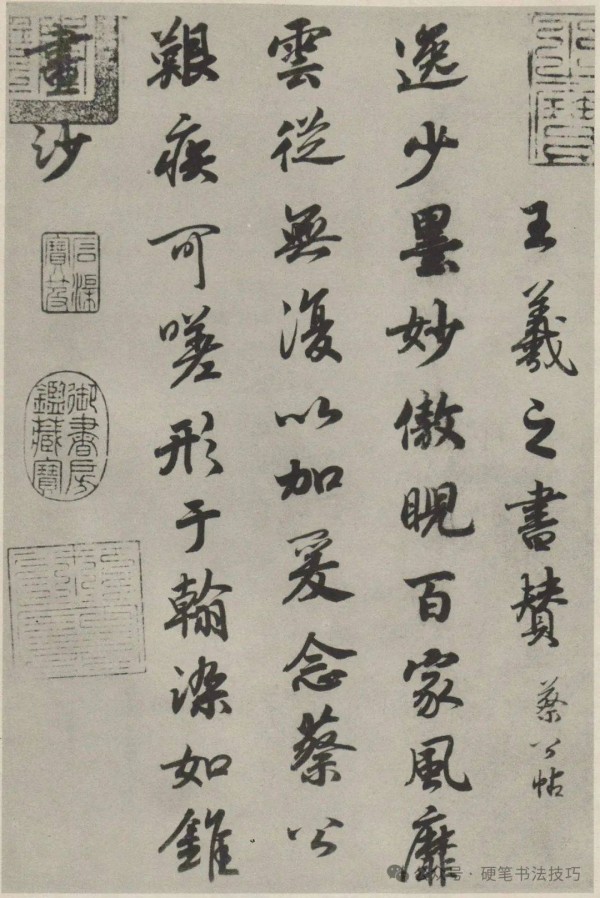 王羲之書贊 蔡公帖
逸少墨妙傲睨百家風靡
雲從無復以加爰念蔡公
艱疾可嗟形于翰染如錐
畫沙
御書房鑑藏寶
公众号·硬笔书法技巧